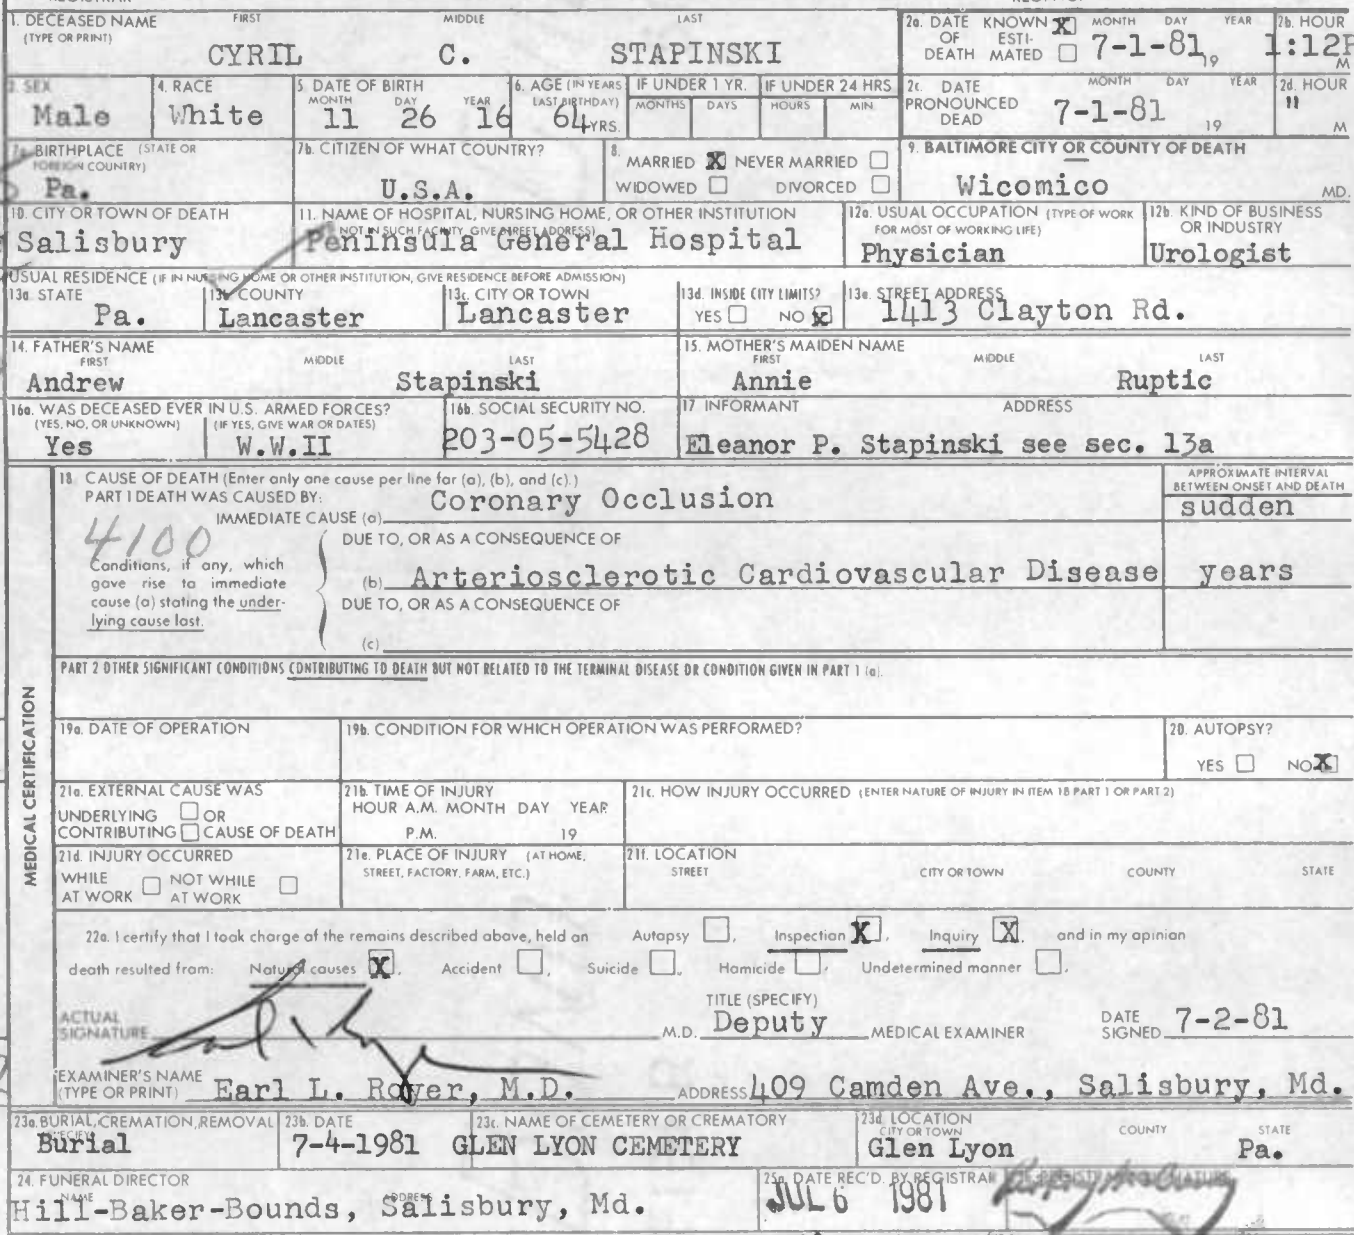 1. DECEASED NAME FIRST MIDDLE LAST
(TYPE OR PRINT)
CYRIL C. STAPINSKI
2a. DATE OF DEATH KNOWN X ESTI-MATED MONTH DAY YEAR
7-1-81, 19
2b. HOUR
1:12P M
3. SEX
Male
4. RACE
White
5. DATE OF BIRTH
MONTH DAY YEAR
11 26 16
6. AGE (IN YEARS LAST BIRTHDAY)
64 YRS.
IF UNDER 1 YR.
MONTHS DAYS
IF UNDER 24 HRS
HOURS MIN.
2c. DATE PRONOUNCED DEAD MONTH DAY YEAR
7-1-81 19
2d. HOUR
" M
7a. BIRTHPLACE (STATE OR FOREIGN COUNTRY)
Pa.
7b. CITIZEN OF WHAT COUNTRY?
U.S.A.
8. MARRIED X NEVER MARRIED
WIDOWED DIVORCED
9. BALTIMORE CITY OR COUNTY OF DEATH
Wicomico MD.
10. CITY OR TOWN OF DEATH
Salisbury
11. NAME OF HOSPITAL, NURSING HOME, OR OTHER INSTITUTION
(IF NOT IN SUCH FACILITY, GIVE STREET ADDRESS)
Peninsula General Hospital
12a. USUAL OCCUPATION (TYPE OF WORK FOR MOST OF WORKING LIFE)
Physician
12b. KIND OF BUSINESS OR INDUSTRY
Urologist
USUAL RESIDENCE (IF IN NURSING HOME OR OTHER INSTITUTION, GIVE RESIDENCE BEFORE ADMISSION)
13a. STATE
Pa.
13b. COUNTY
Lancaster
13c. CITY OR TOWN
Lancaster
13d. INSIDE CITY LIMITS?
YES NO X
13e. STREET ADDRESS
1413 Clayton Rd.
14. FATHER'S NAME
FIRST MIDDLE LAST
Andrew Stapinski
15. MOTHER'S MAIDEN NAME
FIRST MIDDLE LAST
Annie Ruptic
16a. WAS DECEASED EVER IN U.S. ARMED FORCES?
(YES, NO, OR UNKNOWN) (IF YES, GIVE WAR OR DATES)
Yes W.W.II
16b. SOCIAL SECURITY NO.
203-05-5428
17 INFORMANT ADDRESS
Eleanor P. Stapinski see sec. 13a
MEDICAL CERTIFICATION
18. CAUSE OF DEATH (Enter only one cause per line for (a), (b), and (c).)
PART I DEATH WAS CAUSED BY:
IMMEDIATE CAUSE (a) Coronary Occlusion
APPROXIMATE INTERVAL BETWEEN ONSET AND DEATH
sudden
4100
Conditions, if any, which
gave rise to immediate
cause (a) stating the under-
lying cause last.
DUE TO, OR AS A CONSEQUENCE OF
(b) Arteriosclerotic Cardiovascular Disease years
DUE TO, OR AS A CONSEQUENCE OF
(c)
PART 2 OTHER SIGNIFICANT CONDITIONS CONTRIBUTING TO DEATH BUT NOT RELATED TO THE TERMINAL DISEASE OR CONDITION GIVEN IN PART 1 (a).
19a. DATE OF OPERATION
19b. CONDITION FOR WHICH OPERATION WAS PERFORMED?
20. AUTOPSY?
YES NO X
21a. EXTERNAL CAUSE WAS
UNDERLYING OR
CONTRIBUTING CAUSE OF DEATH
21b. TIME OF INJURY
HOUR A.M. MONTH DAY YEAR
P.M. 19
21c. HOW INJURY OCCURRED (ENTER NATURE OF INJURY IN ITEM 18 PART 1 OR PART 2)
21d. INJURY OCCURRED
WHILE AT WORK NOT WHILE AT WORK
21e. PLACE OF INJURY (AT HOME, STREET, FACTORY, FARM, ETC.)
21f. LOCATION
STREET CITY OR TOWN COUNTY STATE
22a. I certify that I took charge of the remains described above, held an Autopsy , Inspection X , Inquiry X , and in my opinion
death resulted from: Natural causes X , Accident , Suicide , Homicide , Undetermined manner .
ACTUAL SIGNATURE M.D.
TITLE (SPECIFY)
Deputy MEDICAL EXAMINER
DATE SIGNED 7-2-81
EXAMINER'S NAME
(TYPE OR PRINT) Earl L. Royer, M.D.
ADDRESS 409 Camden Ave., Salisbury, Md.
23a. BURIAL, CREMATION, REMOVAL
Burial
23b. DATE
7-4-1981
23c. NAME OF CEMETERY OR CREMATORY
GLEN LYON CEMETERY
23d. LOCATION
CITY OR TOWN COUNTY STATE
Glen Lyon Pa.
24. FUNERAL DIRECTOR
NAME ADDRESS
Hill-Baker-Bounds, Salisbury, Md.
25a. DATE REC'D. BY REGISTRAR
JUL 6 1981